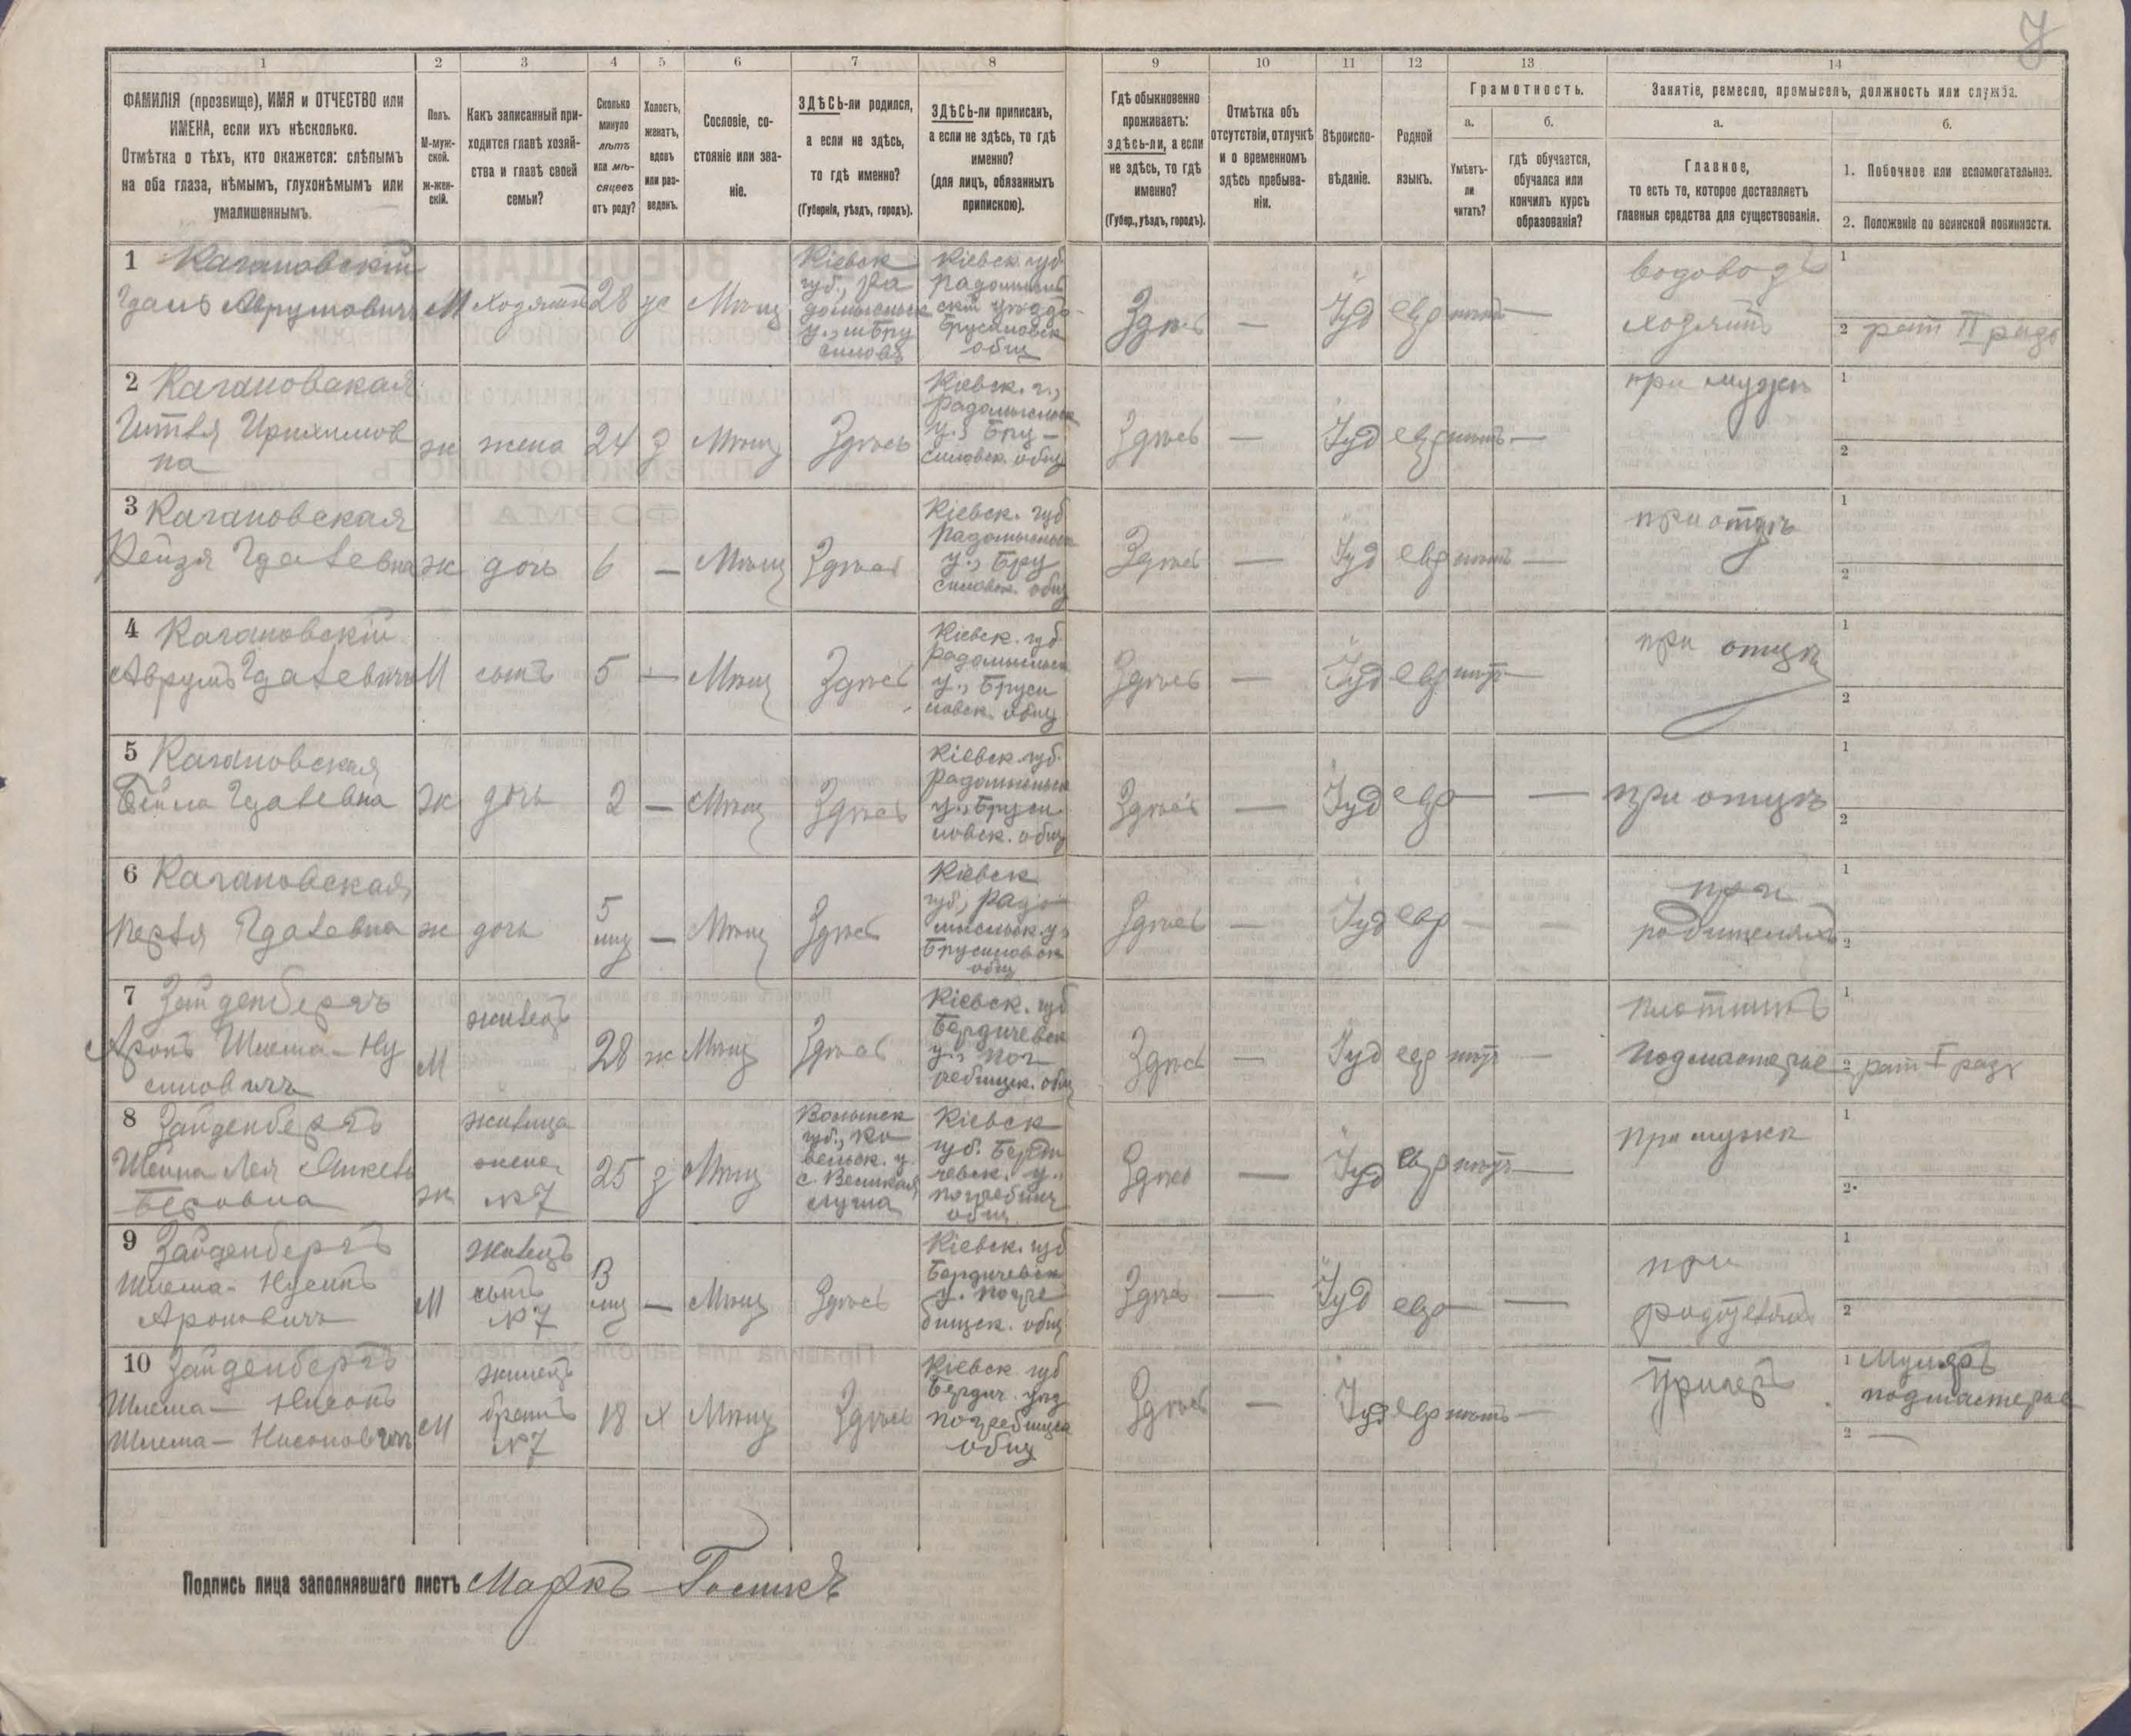 1
2
3
4
5
6
7
8
9
10
11
12
13
14
ФАМИЛІЯ (прозвище), ИМЯ и ОТЧЕСТВО или
ИМЕНА, если ихъ нѣсколько.
Отмѣтка о тѣхъ, кто окажется: слѣпымъ
на оба глаза, нѣмымъ, глухонѣмымъ или
умалишеннымъ.
Полъ.
М-муж-
ской.
Ж-жен-
скій.
Какъ записанный при-
ходится главѣ хозяй-
ства и главѣ своей
семьи?
Сколько
минуло
лѣтъ
или мѣ-
сяцевъ
отъ роду?
Холостъ,
женатъ,
вдовъ
или раз-
веденъ.
Сословіе, со-
стояніе или зва-
ніе.
ЗДѢСЬ-ли родился,
а если не здѣсь,
то гдѣ именно?
(Губернія, уѣздъ, городъ).
ЗДѢСЬ-ли приписанъ,
а если не здѣсь, то гдѣ
именно?
(для лицъ, обязанныхъ
припискою).
Гдѣ обыкновенно
проживаетъ:
здѣсь-ли, а если
не здѣсь, то гдѣ
именно?
(Губер., уѣздъ, городъ).
Отмѣтка объ
отсутствіи, отлучкѣ
и о временномъ
здѣсь пребыва-
ніи.
Вѣроиспо-
вѣданіе.
Родной
языкъ.
Грамотность.
а.
Умѣетъ-
ли
читать?
б.
гдѣ обучается,
обучался или
кончилъ курсъ
образованія?
Занятіе, ремесло, промыселъ, должность или служба.
а.
Главное,
то есть то, которое доставляетъ
главныя средства для существованія.
б.
1. Побочное или вспомогательное.
2. Положеніе по воинской повинности.
1 Кагановскій
Аврумовичъ М 28 Мѣщ
Кіевск
губ., Ра
домысльск
Кіевск. губ
Брусиловск
общ
Здѣсь — Іуд евр нѣтъ —
водовозъ
1
2 рат II разр
2 Кагановская
жена 24 з Мѣщ Здѣсь
Кіевск. г.,
Радомысльск
у., Бру-
силовск. общ
Здѣсь — Іуд евр нѣтъ —
при мужѣ
1
2
3 Кагановская
Рейзя ж дочь 6 — Мѣщ Здѣсь
Кіевск. губ
Радомысльск
у., Бру
силовск. общ
Здѣсь — Іуд евр нѣтъ —
при отцѣ
1
2
4 Кагановскій
Аврумъ М сынъ 5 — Мѣщ Здѣсь
Кіевск. губ
Радомысльск
у., Бруси
ловск. общ
Здѣсь — Іуд евр нѣтъ —
при отцѣ
1
2
5 Кагановская
Бейла ж дочь 2 — Мѣщ Здѣсь
Кіевск. губ.
Радомысльск
у., Бруси
ловск. общ
Здѣсь — Іуд евр — — при отцѣ
1
2
6 Кагановская
ж дочь 5 — Мѣщ Здѣсь
Кіевск
губ., Радо
мысльск. у.
Брусиловск
общ
Здѣсь — Іуд евр — —
при
родителяхъ
1
2
7 Зайденбергъ
Аронъ Шлема-Ну
симовичъ
М 28 ж Мѣщ Здѣсь
Кіевск. губ
Бердичевск
у., Пог
ребищск. общ
Здѣсь — Іуд евр нѣтъ —
плотникъ
подмастерье
1
2 рат I разр
8 Зайденбергъ
Шейна Лея
Беровна
ж
жена
№ 7
25 з Мѣщ
Волынск
губ., Ко
вельск. у.
с. Великая
Кіевск
губ. Берди
чевск. у.,
погребищ
общ
Здѣсь — Іуд евр нѣтъ —
при мужѣ
1
2
9 Зайденбергъ
Ароновичъ
М
сынъ
№ 7
— Мѣщ Здѣсь
Кіевск. губ
Бердичевск
у. погре
бищск. общ
Здѣсь — Іуд евр — —
при
1
2
10 Зайденбергъ
Шлема-
Шлема-
М
жилецъ
братъ
№ 7
18 х Мѣщ Здѣсь
Кіевск губ
Бердич. уѣзд
погребищск
общ
Здѣсь — Іуд евр нѣтъ —
1
подмастерье
2 —
Подпись лица заполнявшаго листъ Маркъ